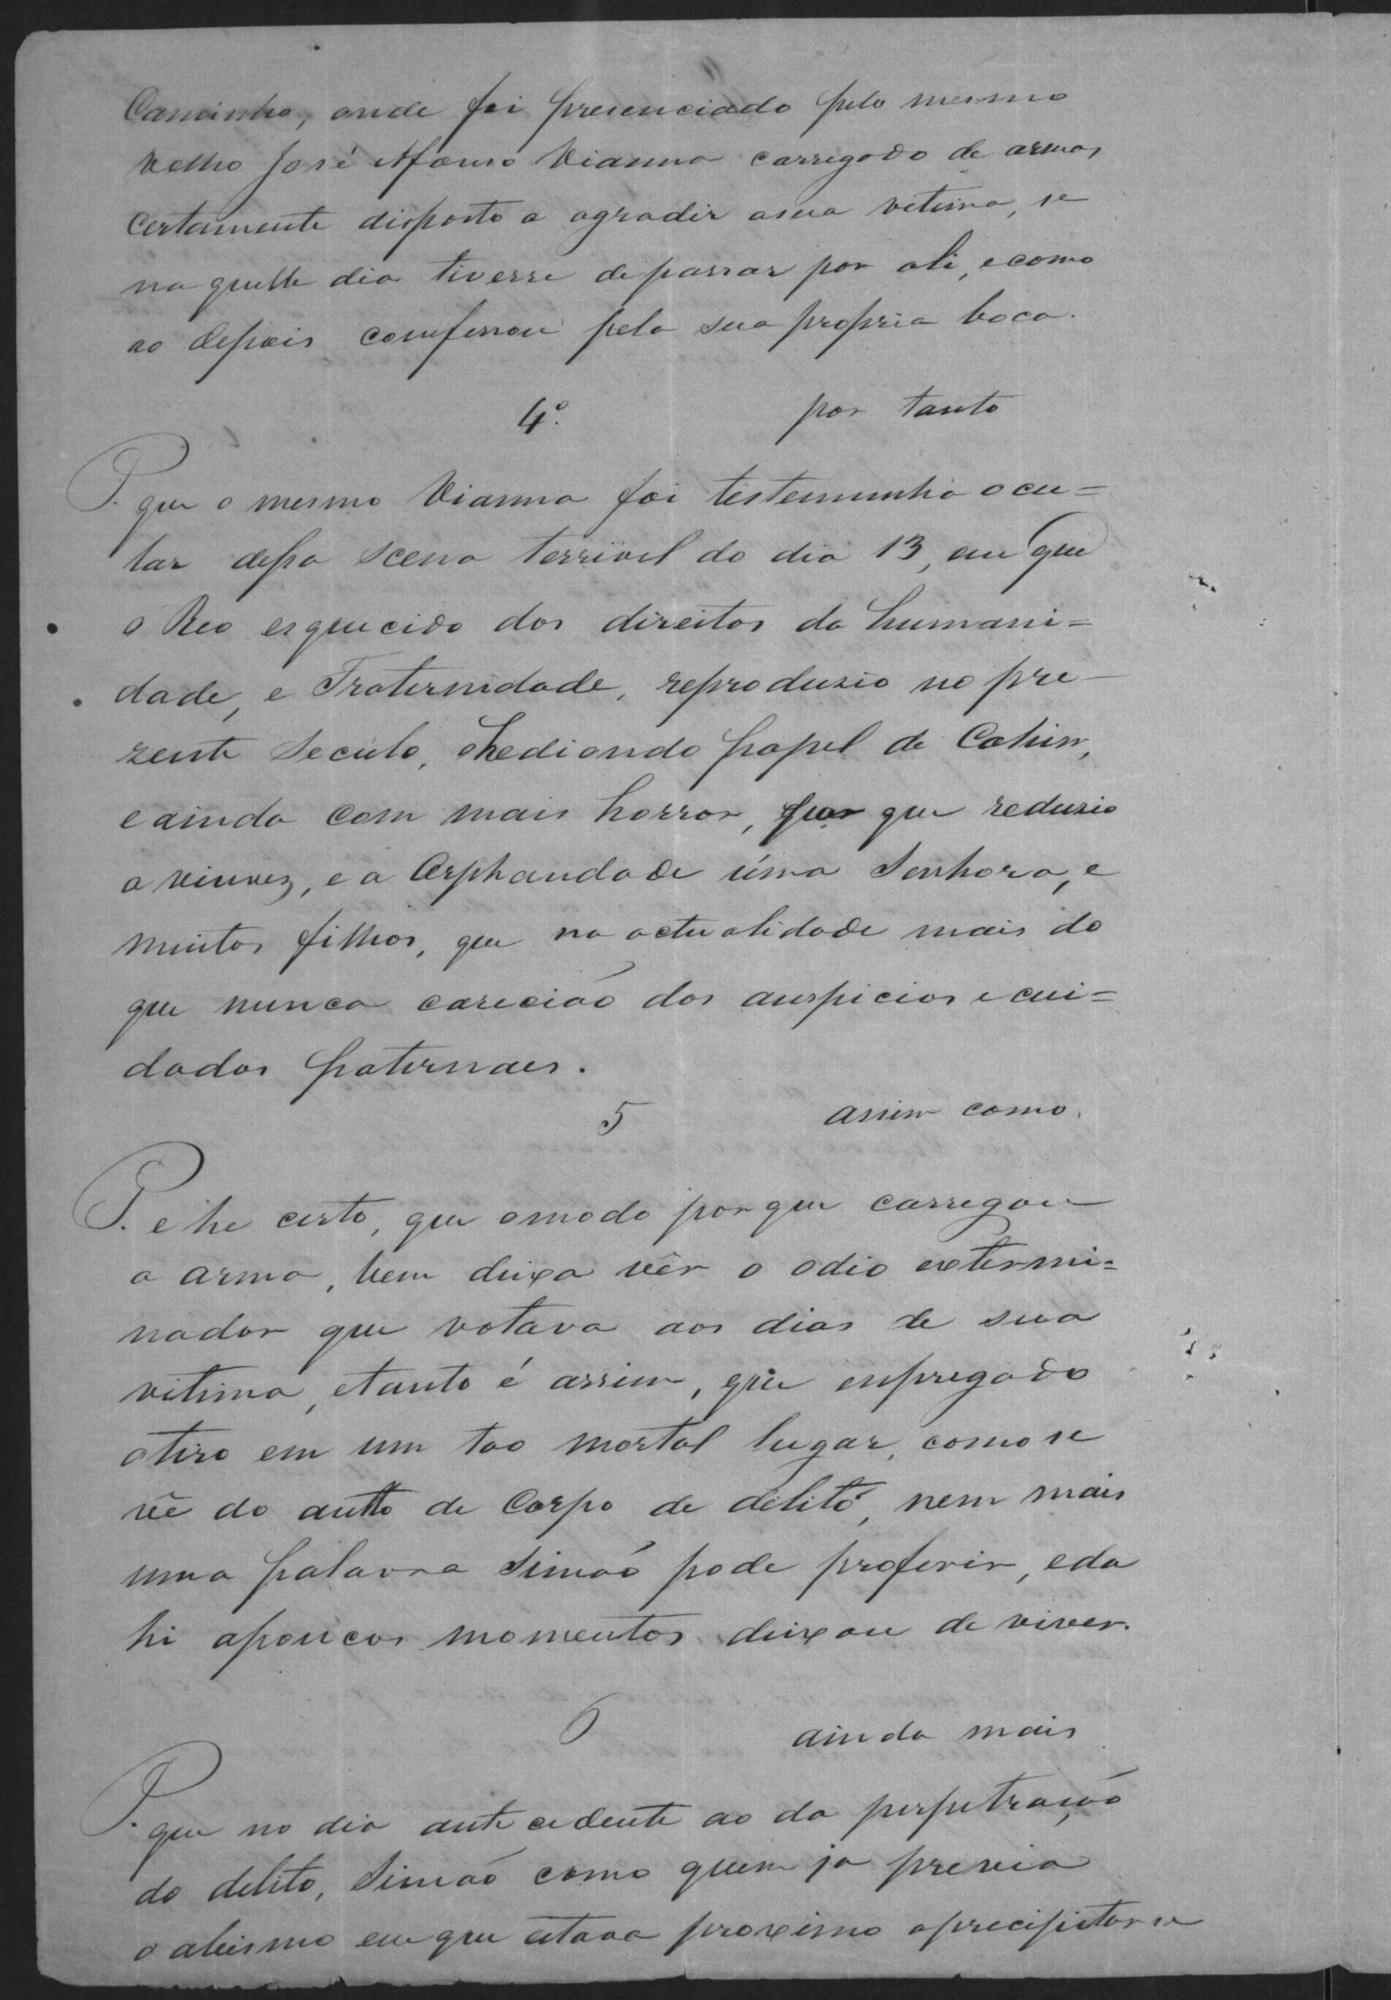 Caminho, onde foi presenciado pelo mesmo
velho José Afonso Vianna carregado de armas
certamente disposto a agradir asua vetima, se
na quelle dia tivesse depassar por ali, ecomo
ao depois comfessou pela sua propria boca.
4º. por tanto
P. que o mesmo Vianna foi testemunha ocu=
lar dessa scena terrivel do dia 13, em que
o Reo esquecido dos direitos da humani=
dade, e Fraternidade, reprodusio no pre-
zente Seculo, ohediondo papel de Cahim,
e ainda com mais horror, por que redusio
a viuvez, e a Orphandade úma Senhora, e
muitos filhos, que na actualidade mais do
que nunca careciaõ dos auspicios e cui=
dados paternaes.
5 assim como
P. e he certo, que omodo porque carregou
a arma, bem deixa vêr o odio extermi=
nador que votava aos dias de sua
vitima, etanto é assim, que enpregado
otiro em um tao mortal lugar, como se
vê do autto de Corpo de delito, nem mais
uma palavra Simaõ pode proferir, eda
hi apoucos momentos deixou de viver.
6 ainda mais
P. que no dia ante cedente ao da perpetração
do delito, Simaõ como quem ja previa
o abismo em que estava proximo aprecipitar se